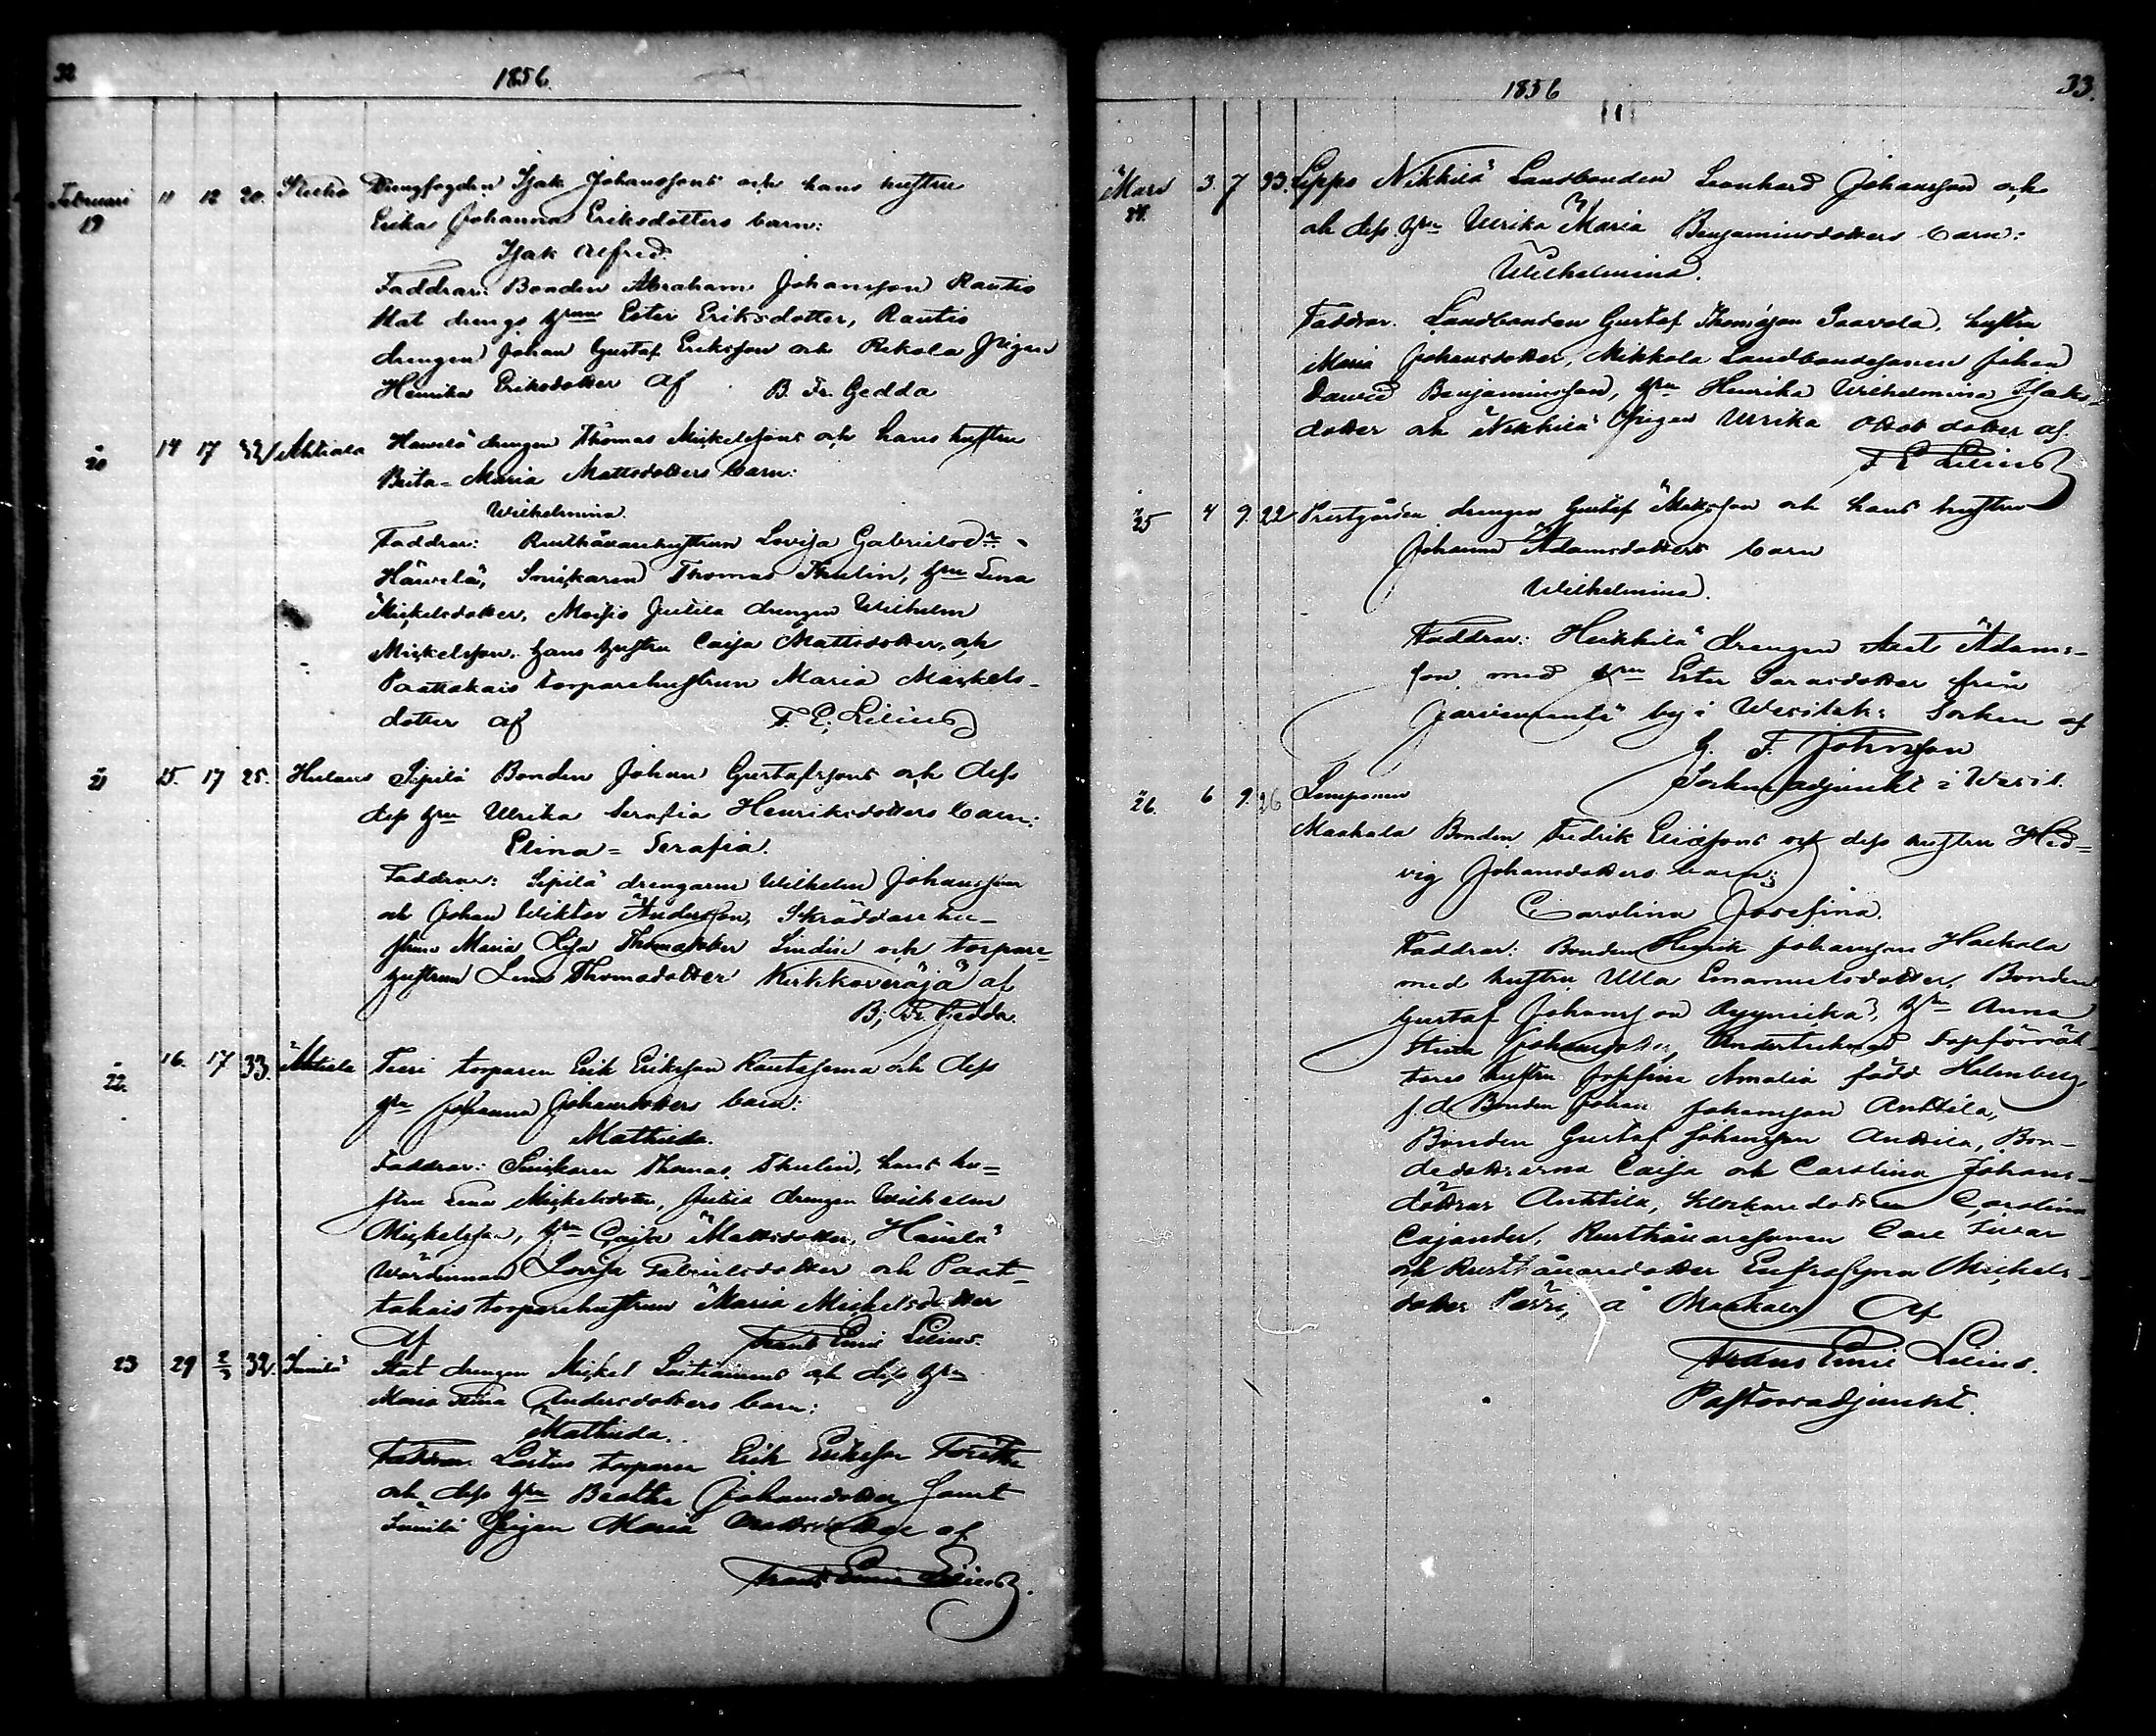 32
1856.
Februari 11 12 20. Drengfogden Isak Johanssons och hans hustru
19
Erika Johanna Eriksdotters barn:
Isak Alfred.
Faddrar: Bonden Abraham Johansson Rautio
Stat drengs Hru Ester Eriksdotter, Rautio
drengen Johan Gustaf Eriksson och Rekola Pigan
Henrika Eriksdotter af B. Fr. Gedda
20 14 17 32 Ahtiala Hawelä drengen Thomas Mickelssons och hans hustru
Brita-Maria Mattsdotters barn:
Wilhelmina.
Faddrar: Rusthållarehustrun Lovisa Gabrielsdr
Häwelä, Snickaren Thomas Thulin, Hru Lena
Mickelsdotter, Moisio Jutila drengen Wilhelm
Mickelsson, hans hustru Caisa Mattsdotter, och
torparehustrun Maria Mickels-
dotter af F. E. Lilius
21 15. 17 25. Sipilä Bonden Johan Gustafssons och dess
dess Hru Ulrika Serafia Henriksdotters barn:
Elina = Serafia.
Faddrar: Sipilä drengarne Wilhelm Johansson
och Johan Wiktor Andersson, Skräddarehu-
strun Maria Lisa Thomasdotter och torpare
hustrun Lena Thomasdotter af
B. Fr. Gedda.
22. 16. 17 33. Ahtiala Tieri torparen Erik Eriksson och dess
Hru Johanna Johansdotters barn:
Mathilda.
Faddrar: Snickaren Thomas Thulin, hans hu=
stru Lena Mickelsdotter, Jutila drengen Wilhelm
Mickelsson, Hru Cajsa Mattsdotter, Häwelä
Wärdinnan Lovisa Gabrielsdotter och Paat-
takais torparehustrun Maria Mickelsdotter
Af Frans Emil Lilius.
23 29 2/3 32. Junnila Stat drengen Mickel och dess Hru
Maria Stina Andersdotters barn:
Mathilda.
Faddrar torparen Erik Eriksson
och dess Hru Beatha Johansdotter samt
Junnila Pigan Maria af
Frans Emil Lilius.
1856
33.
Mars 3. 7 33. Leppo Nikkilä Landbonden Leonhard Johansson och
24.
och dess Hru Ulrika Maria Benjaminsdotters barn:
Wilhelmina.
Faddrar. Landbonden Gustaf Thomasson Paavola, hustru
Maria Johansdotter, Mikkola Landbondesonen Johan
David Benjaminsson, Hru Henrika Wilhelmina Isaks-
dotter och Nikkilä Pigan Ulrika dotter af
F. E. Lilius
25 4 9. 22 Prestgården drengen Gustaf Matsson och hans hustru
Johanna Adamsdotters barn
Wilhelmina.
Faddrar: Heikkilä drengen Adams-
son med Hru Ester från
by i Wesilaks Socken af
G. F. Johnsson
Sockneadjunkt i Wesil.
26. 6 9. 26 Lemponen
Maakala Bonden Fredrik och dess hustru Hed=
vig Johansdotters barn:
Carolina Josefina.
Faddrar: Bonden Henrik Johansson Haekala
med hustru Ulla Emanuelsdotter, Bonden
Gustaf Johansson Hru Anna
Stina
tores hustru Josefina Amalia född Holmberg,
f. d. Bonden Johan Johansson Anttila,
Bonden Gustaf Johansson Anttila, Bon-
dedöttrarna Caisa och Carolina Johans-
döttrar Anttila, Klockaredottren Carolina
Cajander, Rusthållaresonen
och Rusthållaredotter Eufrosyna Mickels-
dotter å Maakala Af
Frans Emil Lilius.
Pastorsadjunkt.